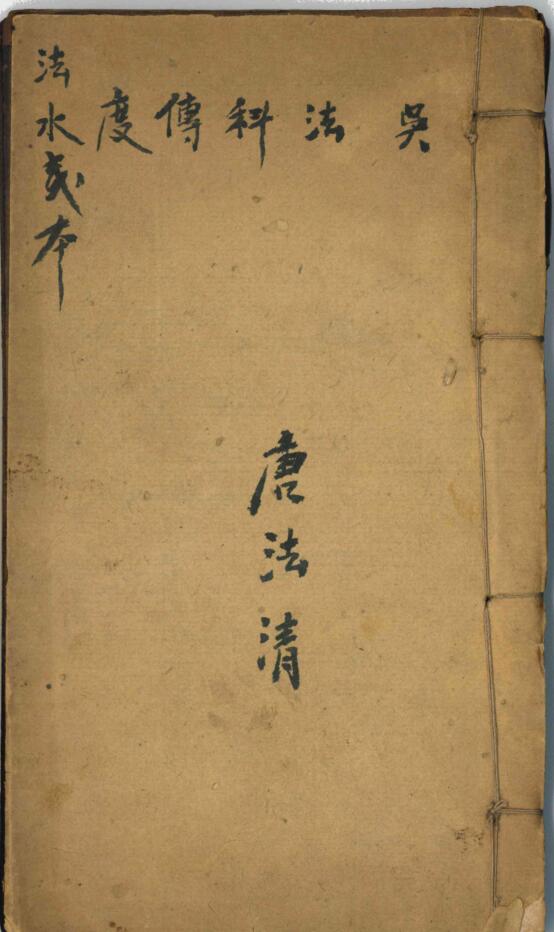 吳法科傳度
法水本
唐法清